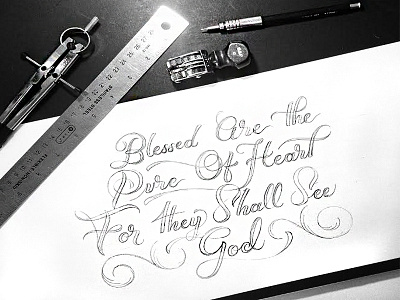 Blessed Are the
Pure Of Heart
For they Shall See
God